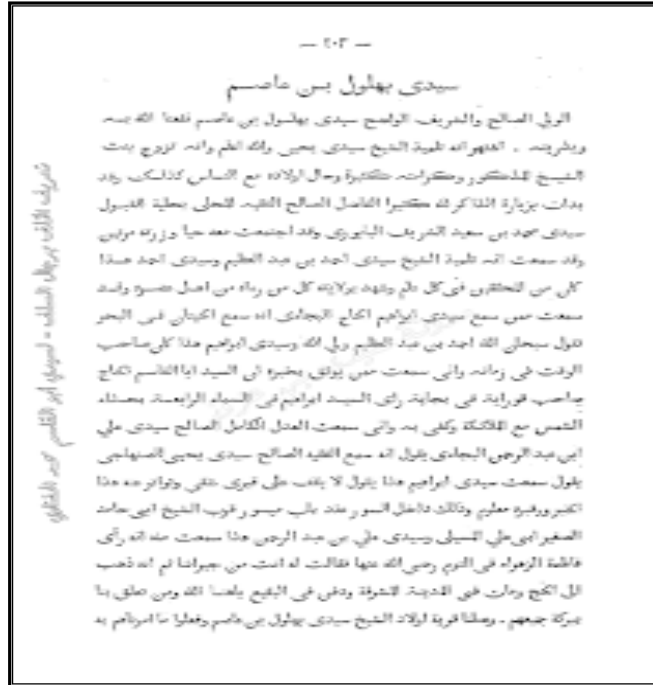 — ٢٠٣ —
سيدي بهلول بن عاصم
الولي الصالح والشريف الواضح سيدي بهلول بن عاصم نفعنا الله به
وبشريته . اشتهر انه تلميذ الشيخ سيدي يحيى والله اعلم وانه تزوج بنت
الشيخ المذكور وكراماته كثيرة وحال اولاده مع الناس كذلك وقد
بدات بزيارة الفاضل الصالح الفقيه المحلى بحلية القبول
سيدي محمد بن سعيد الشريف وقد اجتمعت معه حيا وزرته مرتين
وقد سمعت انه تلميذ الشيخ سيدي احمد بن عبد العظيم وسيدي احمد هذا
كان من المحققين في كل علم وشهد بولايته كل من رءاه من اهل عصره وقد
سمعت ممن سمع سيدي ابراهيم الحاج البجاءي انه سمع الحيتان في البحر
تقول سبحان الله احمد بن عبد العظيم ولي الله وسيدي ابراهيم هذا كان صاحب
الوقت في زمانه واني سمعت ممن يوثق بخبره ان السيد ابا القاسم الحاج
صاحب في بجاية رأى السيد ابراهيم في السماء الرابعة بحذاء
الشمس مع الملائكة وكفى به واني سمعت العدل الكامل الصالح سيدي علي
ابن عبد الرحمن البجاءي يقول انه سمع الفقيه الصالح سيدي يحيى الصنهاجي
يقول سمعت سيدي ابراهيم هذا يقول لا يقف على قبري شقي وتواتر عنه هذا
الخبر وقبره معلوم وذلك داخل السور عند باب قرب الشيخ ابي حامد
الصغير ابي علي المسيلي وسيدي علي بن عبد الرحمن هذا سمعت منه انه رأى
فاطمة الزهراء في النوم رضي الله عنها فقالت له انت من جيراننا ثم انه ذهب
الى الحج ومات في المدينة المشرفة ودفن في البقيع نفعنا الله ومن تعلق بنا
ببركة جميعهم . وصلنا قرية اولاد الشيخ سيدي بهلول بن عاصم وفعلوا ما امرناهم به
تعريف الخلف برجال السلف - لسيدي ابو القاسم محمد الحفناوي